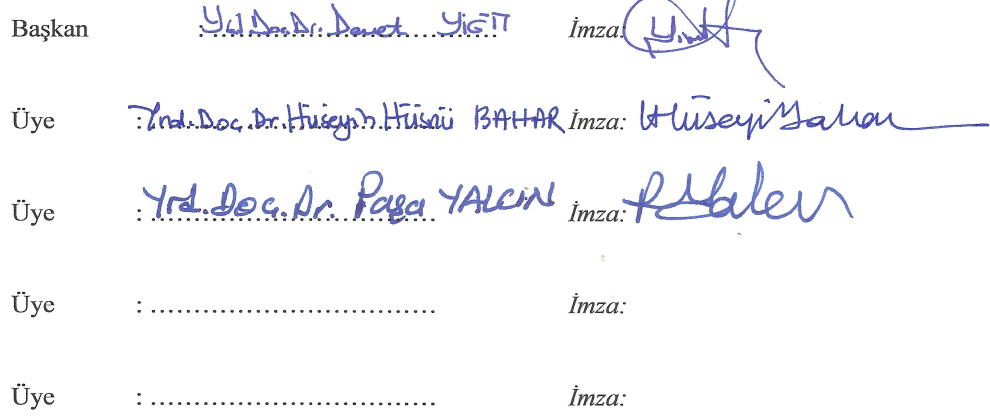 Başkan : Yrd.Doç.Dr. Davet YİĞİT İmza:
Üye : Yrd.Doç.Dr.Hüseyin Hüsnü BAHAR İmza:
Üye : Yrd.Doç.Dr. Paşa YALÇIN İmza:
Üye : .................................... İmza:
Üye : .................................... İmza: